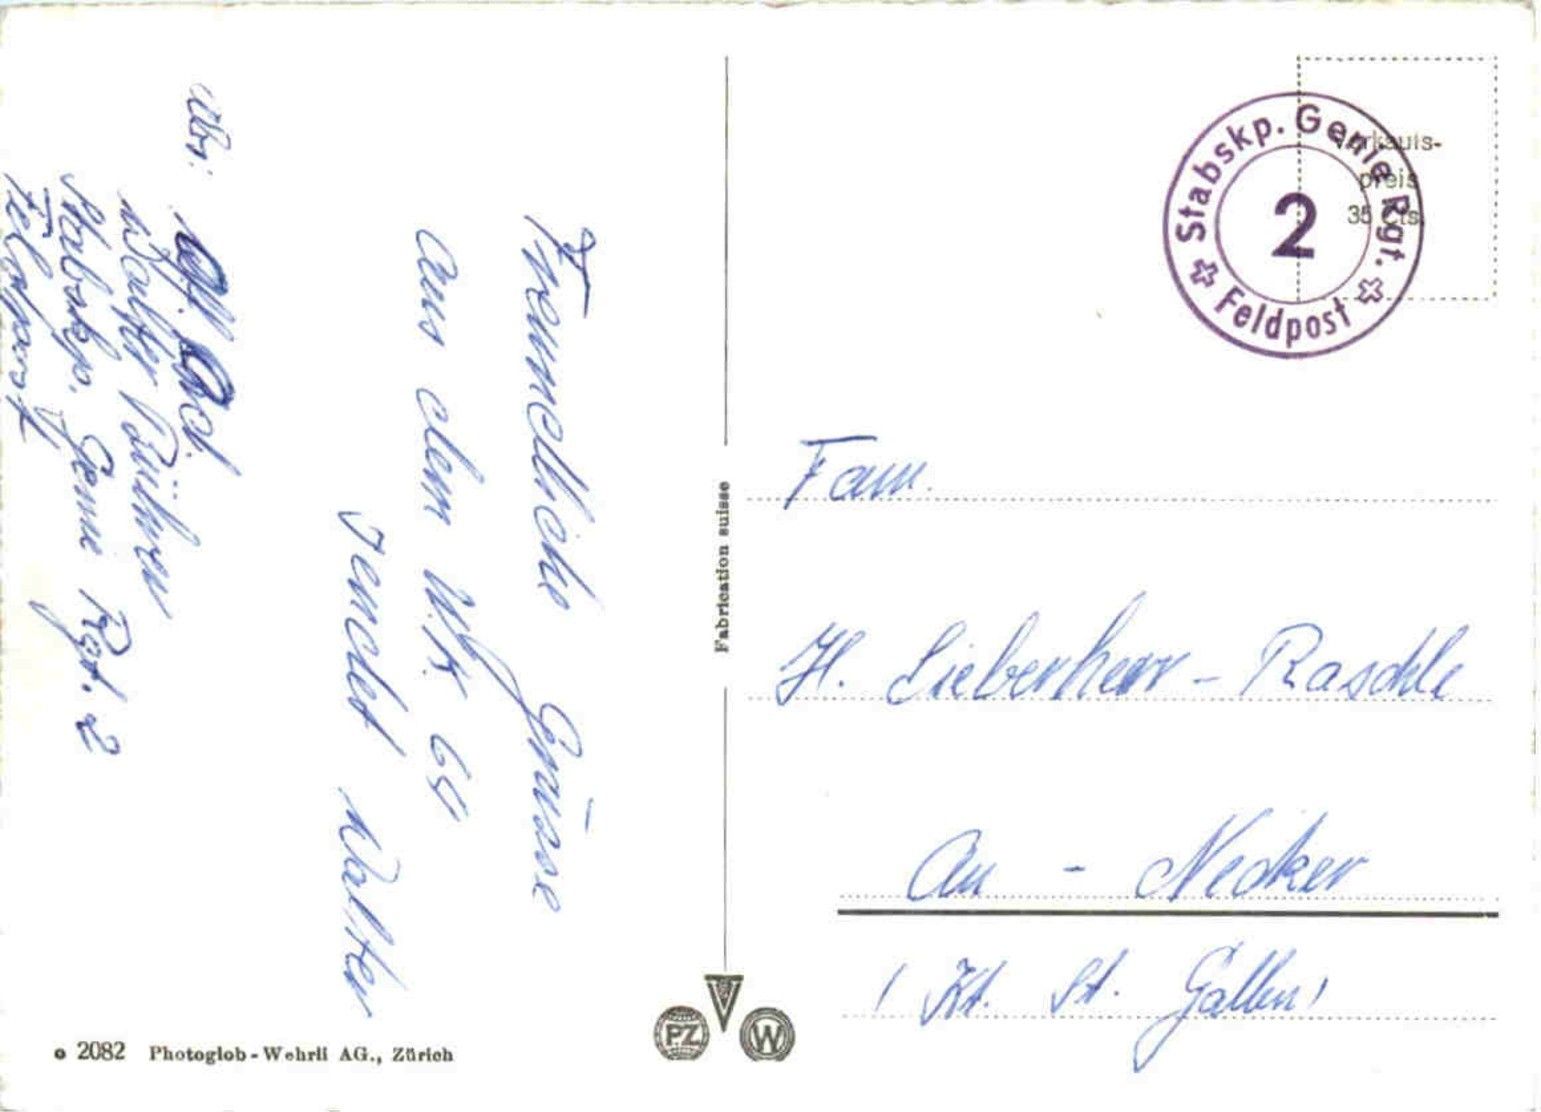 Abs:
Walter Bührer
Stabskp. Genie Rgt. 2
Feldpost
Freundliche Grüsse
aus dem W.K 65
sendet Walter
Fabrication suisse
2082 Photoglob-Wehrli AG., Zürich
PZ
W
Verkaufs-
preis
35 Cts.
Stabskp. Genie Rgt.
2
Feldpost
Fam.
H. Lieberherr - Raschle
Au - Necker
(Kt. St. Gallen)